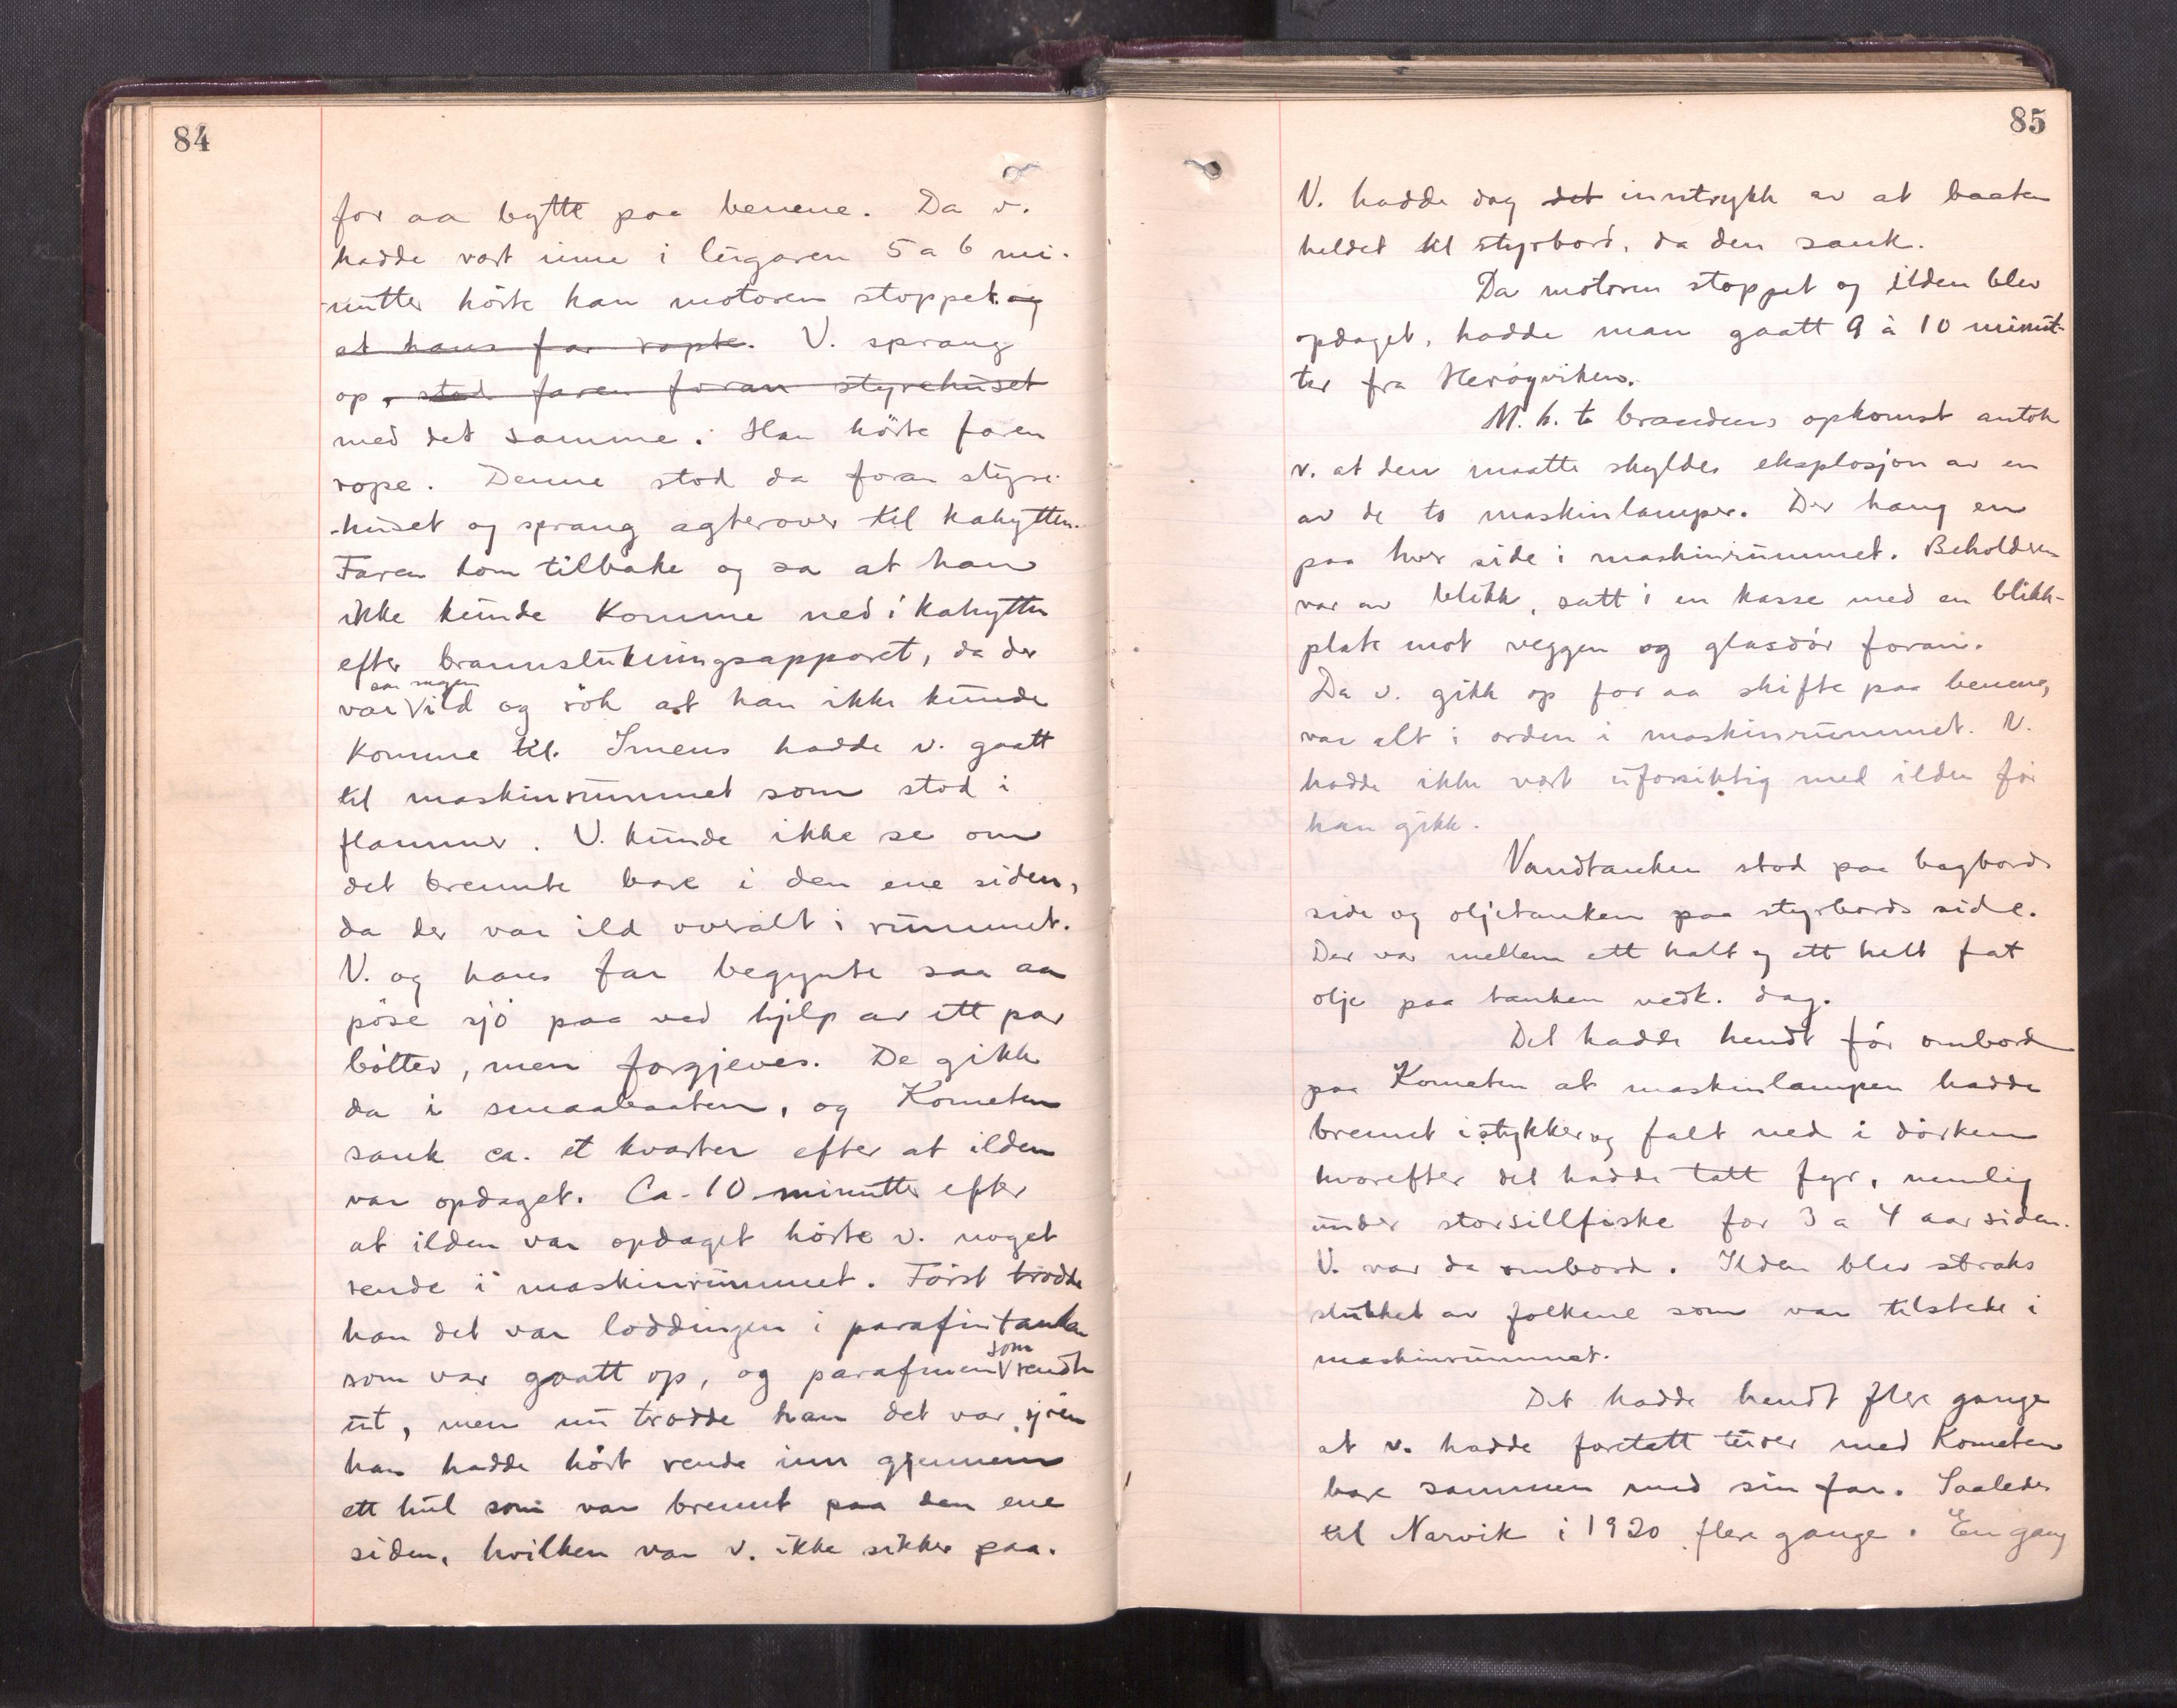 84
for aa bytte paa benene. Da v.
hadde vært inne i lugaren 5 a 6 mi-
nutter hörte han motoren stoppet. og
at hans far ropte. V. sprang
op, stod faren foran styrehuset
med det samme. Han hörte faren
rope. Denne stod da foran styre-
huset og sprang agterover til kahytten.
Faren kom tilbake og sa at han
ikke kunde komme ned i kahytten
efter brannslukningsapparet, da der
saa megen
var ild og rök at han ikke kunde
komme til. Imens hadde v. gaatt
til maskinrummet som stod i
flammer. V. kunde ikke se om
det brennte bare i den ene siden,
da der var ild overalt i rummet.
V. og hans far begynte saa aa
pöse sjö paa ved hjelp av ett par
bötter, men forgjeves. De gikk
da i smaabaaten, og Kometen
sank ca. et kvarter efter at ilden
var opdaget. Ca. 10 minutter efter
at ilden var opdaget hörte v. noget
rende i maskinrummet. Först trodde
han det var loddingen i parafintanken
som
som var gaatt op, og parafinen rendte
ut, men nu trodde han det var sjöen
han hadde hört rende inn gjennem
ett hul som var brennt paa den ene
siden, hvilken var v. ikke sikker paa.
85
V. hadde dog det inntrykk av at baaten
heldet til styrbord, da den sank.
Da motoren stoppet og ilden blev
opdaget, hadde man gaatt 9 à 10 minut-
ter fra Heröyviken.
M.h.t. brandens opkomst antok
v. at den maatte skyldes eksplosjon av en
av de to maskinlamper. Der hang en
paa hver side i maskinrummet. Beholderen
var av blikk, satt i en kasse med en blikk-
plate mot veggen og glasdör foran.
Da v. gikk op for aa skifte paa benene,
var alt i orden i maskinrummet. V.
hadde ikke vært uforsiktig med ilden för
han gikk.
Vandtanken stod paa bagbords
side og oljetanken paa styrbords side.
Der var mellem ett halt og ett helt fat
olje paa tanken vedk. dag.
Det hadde hendt för ombord
paa Kometen at maskinlampen hadde
brennet istykker og falt ned i dörken
hvorefter det hadde tatt fyr, nemlig
under storsillfiske for 3 a 4 aar siden.
V. var da ombord. Ilden blev straks
slukket av folkene som var tilstede i
maskinrummet.
Det hadde hendt flere gange
at v. hadde foretatt turer med Kometen
bare sammen med sin far. Saaledes
til Narvik i 1920 flere gange. En gang